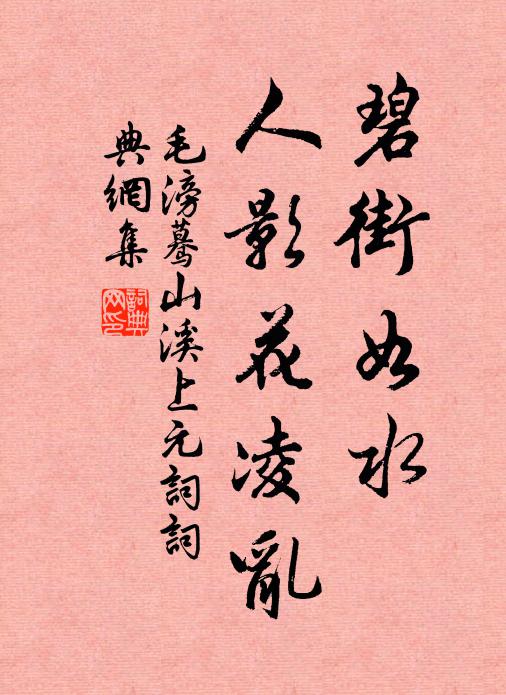 碧街如水
人影花凌亂
毛滂驀山溪上元詞詞
典網集
詞典网印